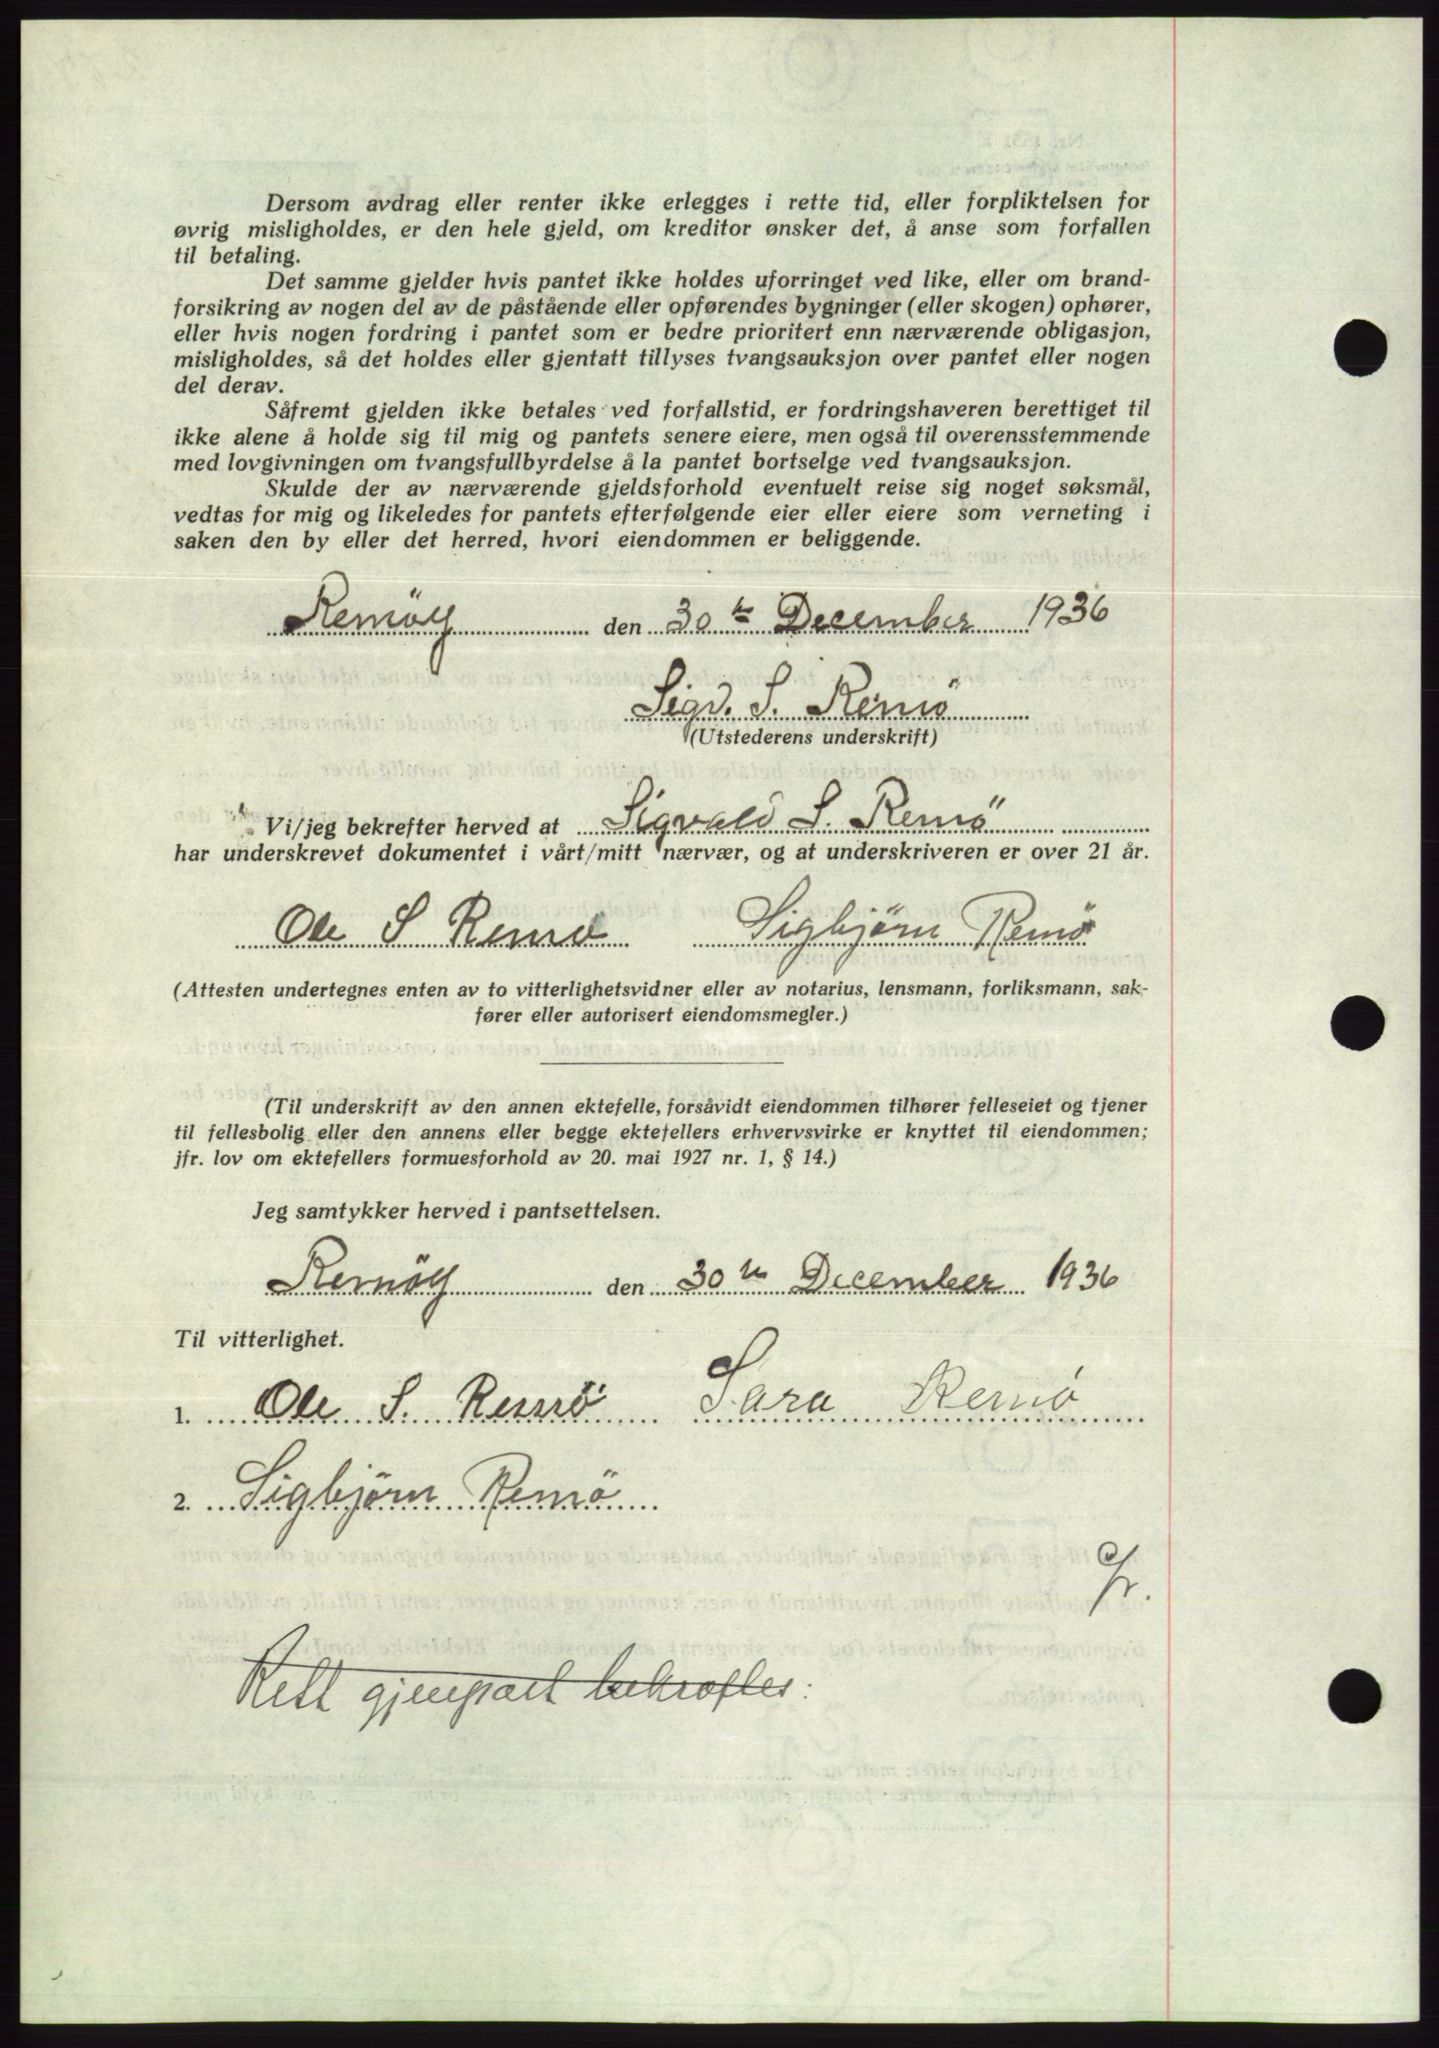 Dersom avdrag eller renter ikke erlegges i rette tid, eller forpliktelsen for
øvrig misligholdes, er den hele gjeld, om kreditor ønsker det, å anse som forfallen
til betaling.
Det samme gjelder hvis pantet ikke holdes uforringet ved like, eller om brand-
forsikring av nogen del av de påstående eller opførendes bygninger (eller skogen) ophører,
eller hvis nogen fordring i pantet som er bedre prioritert enn nærværende obligasjon,
misligholdes, så det holdes eller gjentatt tillyses tvangsauksjon over pantet eller nogen
del derav.
Såfremt gjelden ikke betales ved forfallstid, er fordringshaveren berettiget til
ikke alene å holde sig til mig og pantets senere eiere, men også til overensstemmende
med lovgivningen om tvangsfullbyrdelse å la pantet bortselge ved tvangsauksjon.
Skulde der av nærværende gjeldsforhold eventuelt reise sig noget søksmål,
vedtas for mig og likeledes for pantets efterfølgende eier eller eiere som verneting i
saken den by eller det herred, hvori eiendommen er beliggende.
Remöy den 30te December 1936
Sigv. S. Remö
(Utstederens underskrift)
Vi/jeg bekrefter herved at Sigvald S. Remö
har underskrevet dokumentet i vårt/mitt nærvær, og at underskriveren er over 21 år.
Ole S Remö Sigbjörn Remö
(Attesten undertegnes enten av to vitterlighetsvidner eller av notarius, lensmann, forliksmann, sak-
fører eller autorisert eiendomsmegler.)
(Til underskrift av den annen ektefelle, forsåvidt eiendommen tilhører felleseiet og tjener
til fellesbolig eller den annens eller begge ektefellers erhvervsvirke er knyttet til eiendommen;
jfr. lov om ektefellers formuesforhold av 20. mai 1927 nr. 1, § 14.)
Jeg samtykker herved i pantsettelsen.
Remöy den 30te December 1936
Til vitterlighet.
1. Ole S. Remö Sara Remö
2. Sigbjörn Remö
Rett gjenpart bekreftes: